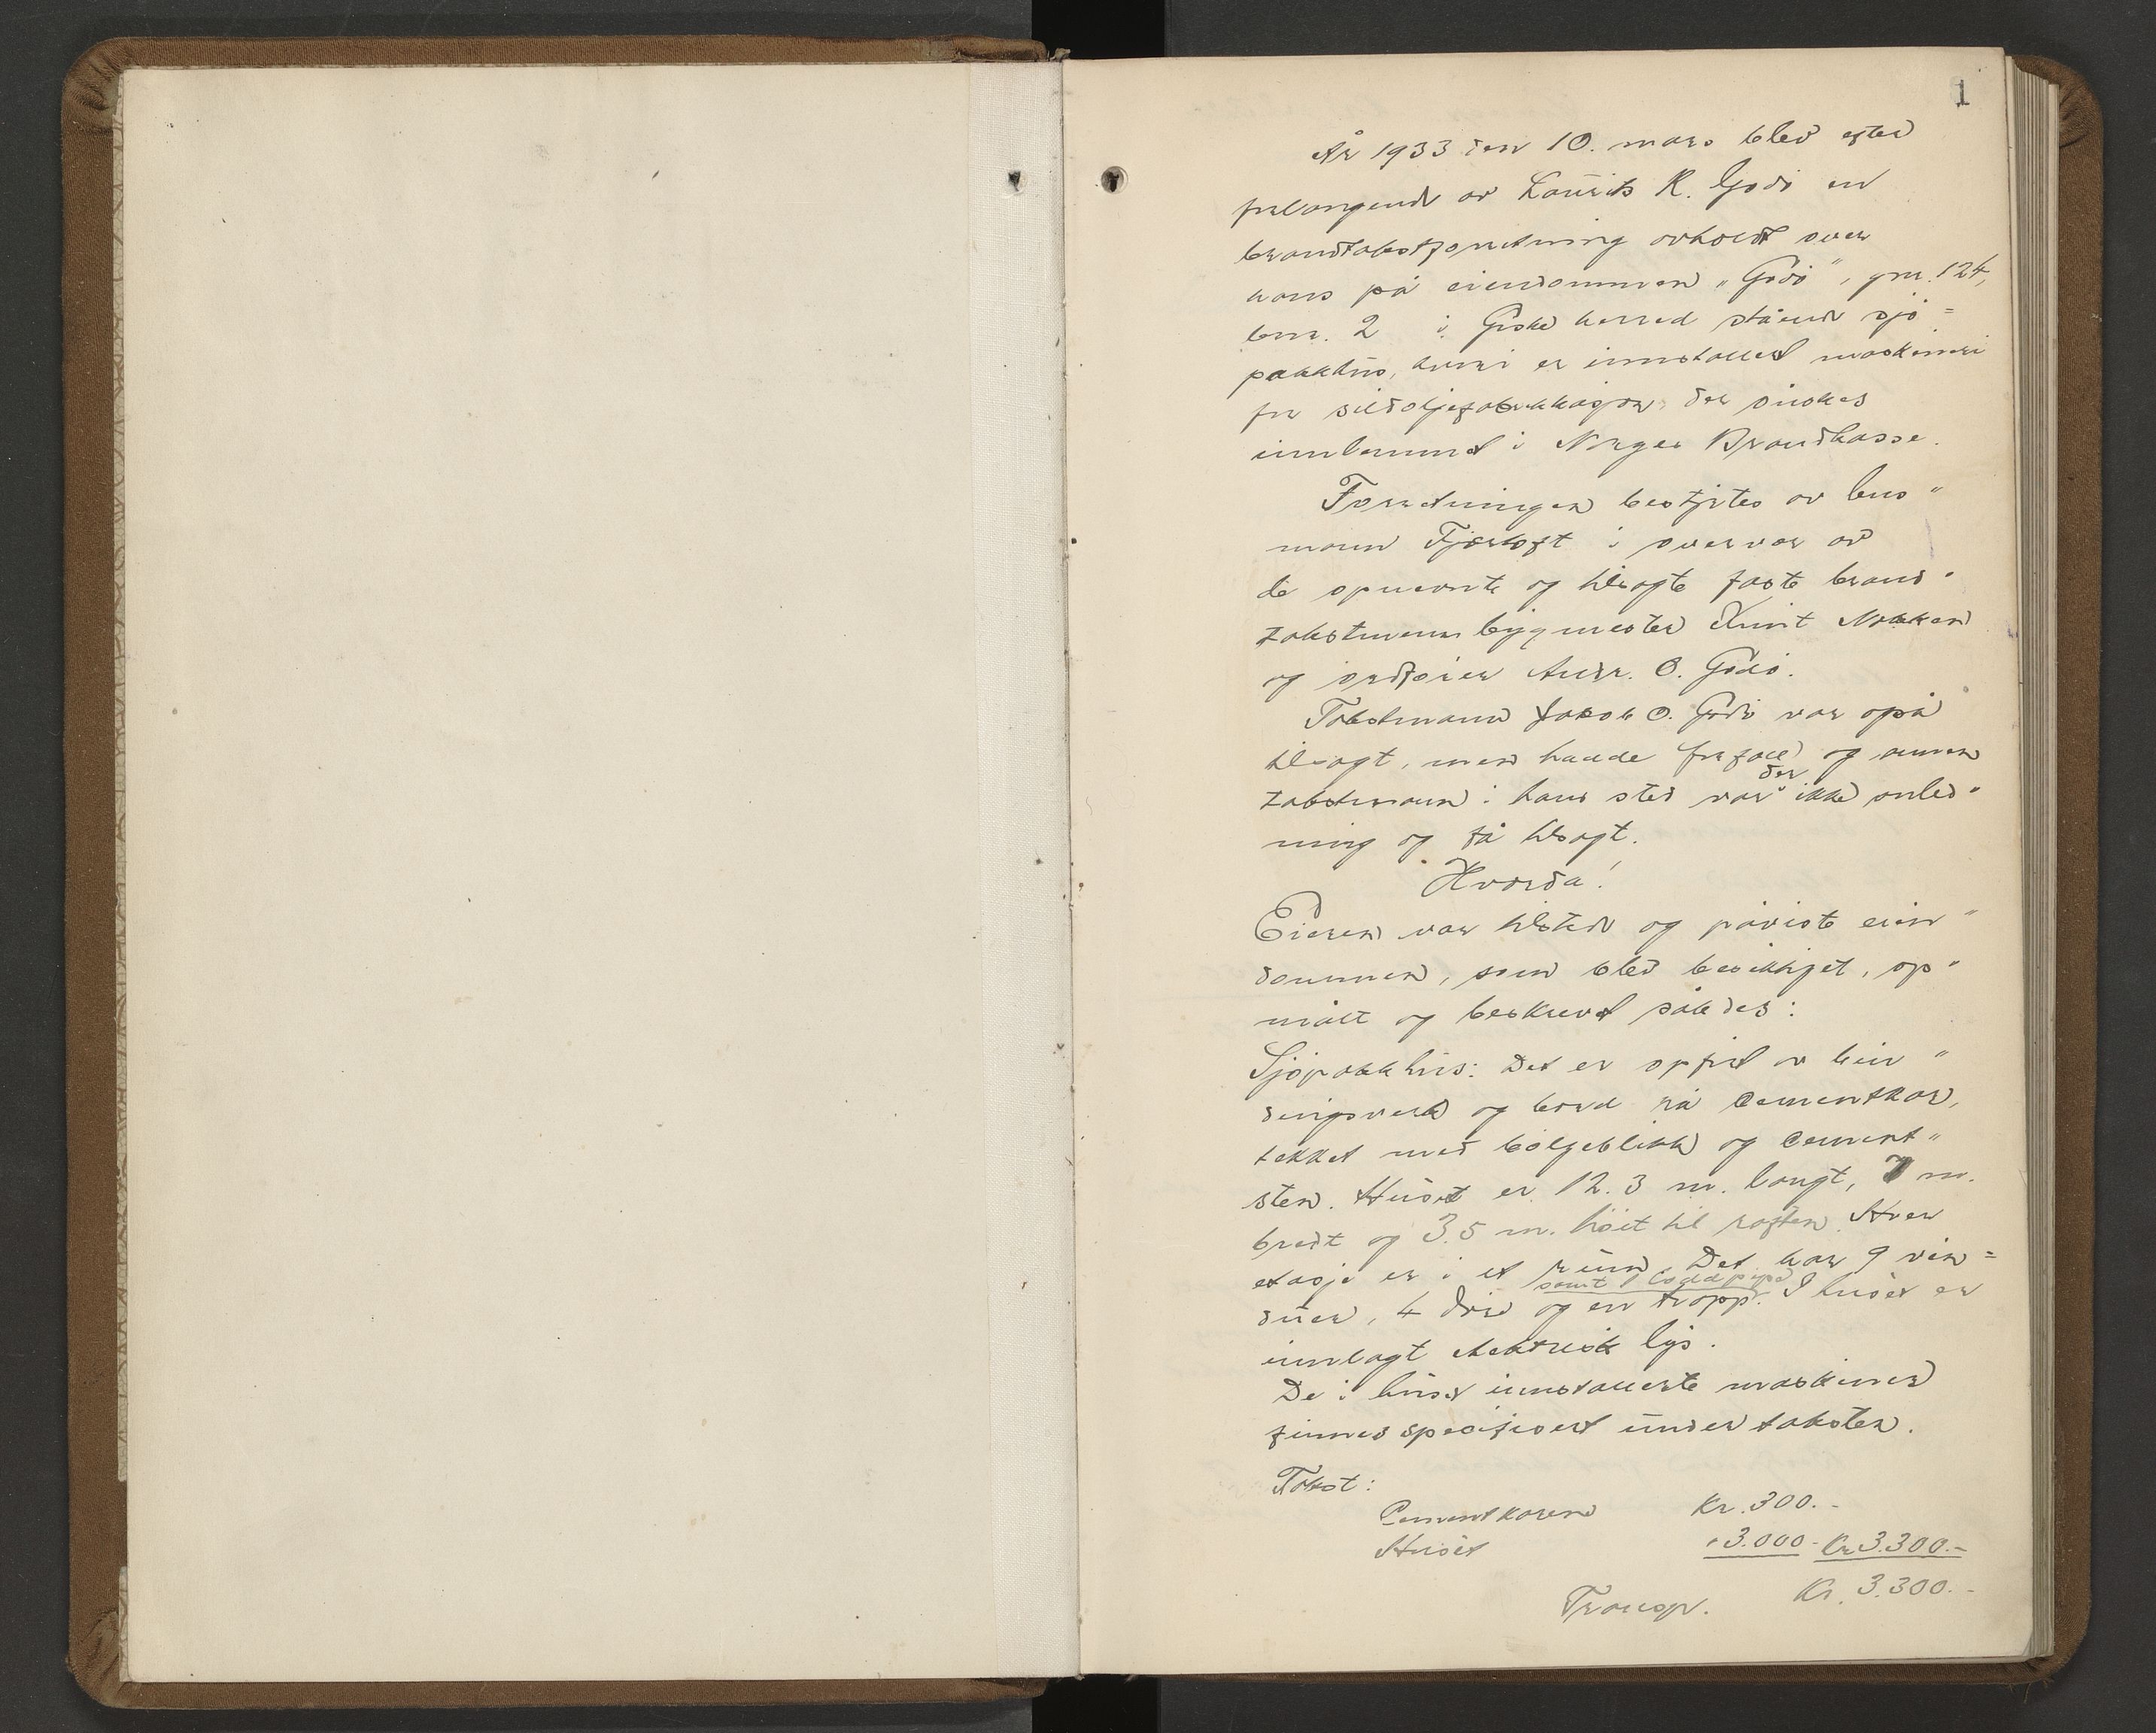 1
År 1933 den 10. mars blev efter
forlangende av Laurits R. Godö en
brandtakstforretning avholdt over
hans på eiendommen „Godö", gnr. 124,
bnr. 2 i Giske herred stående sjö=
pakkhus, hvori er innstallert maskineri
for sildoljefabrikkasjon, der önskes
innlemmet i Norges Brandkasse.
Forretningen bestyrtes av lens"
mann Fjörtoft i overvær av
de opnevnte og tilsagte faste brand"
takstmenn bygmester Knut Nakken
og ordförer Andr. O. Godö.
Takstmann Jakob O. Godö var også
tilsagt, men hadde forfall og annen
takstmann i hans sted var der ikke anled"
ning og få tilsagt.
Hvorda!
Eieren var tilstede og påviste eien"
dommen, som blev besiktiget, op"
målt og beskrevet således:
Sjöpakkhus: Det er opfört av bin"
dingsverk og bord på cementkar,
tekket med bölgeblikk og cement"
sten. Huset er 12.3 m. langt, 7 m.
bredt og 3.5 m. höit til raften. Hver
etasje er i et rum. Det har 9 vin=
duer, 4 döre og en trapp. samt 1 loddpipe I huset er
innlagt elektrisk lys.
De i huset innstallerte maskiner
finnes specifisert under taksten.
Takst:
Cementkarene Kr. 300.-
Huset " 3.000.- Kr. 3.300.-
Transp. Kr. 3.300.-